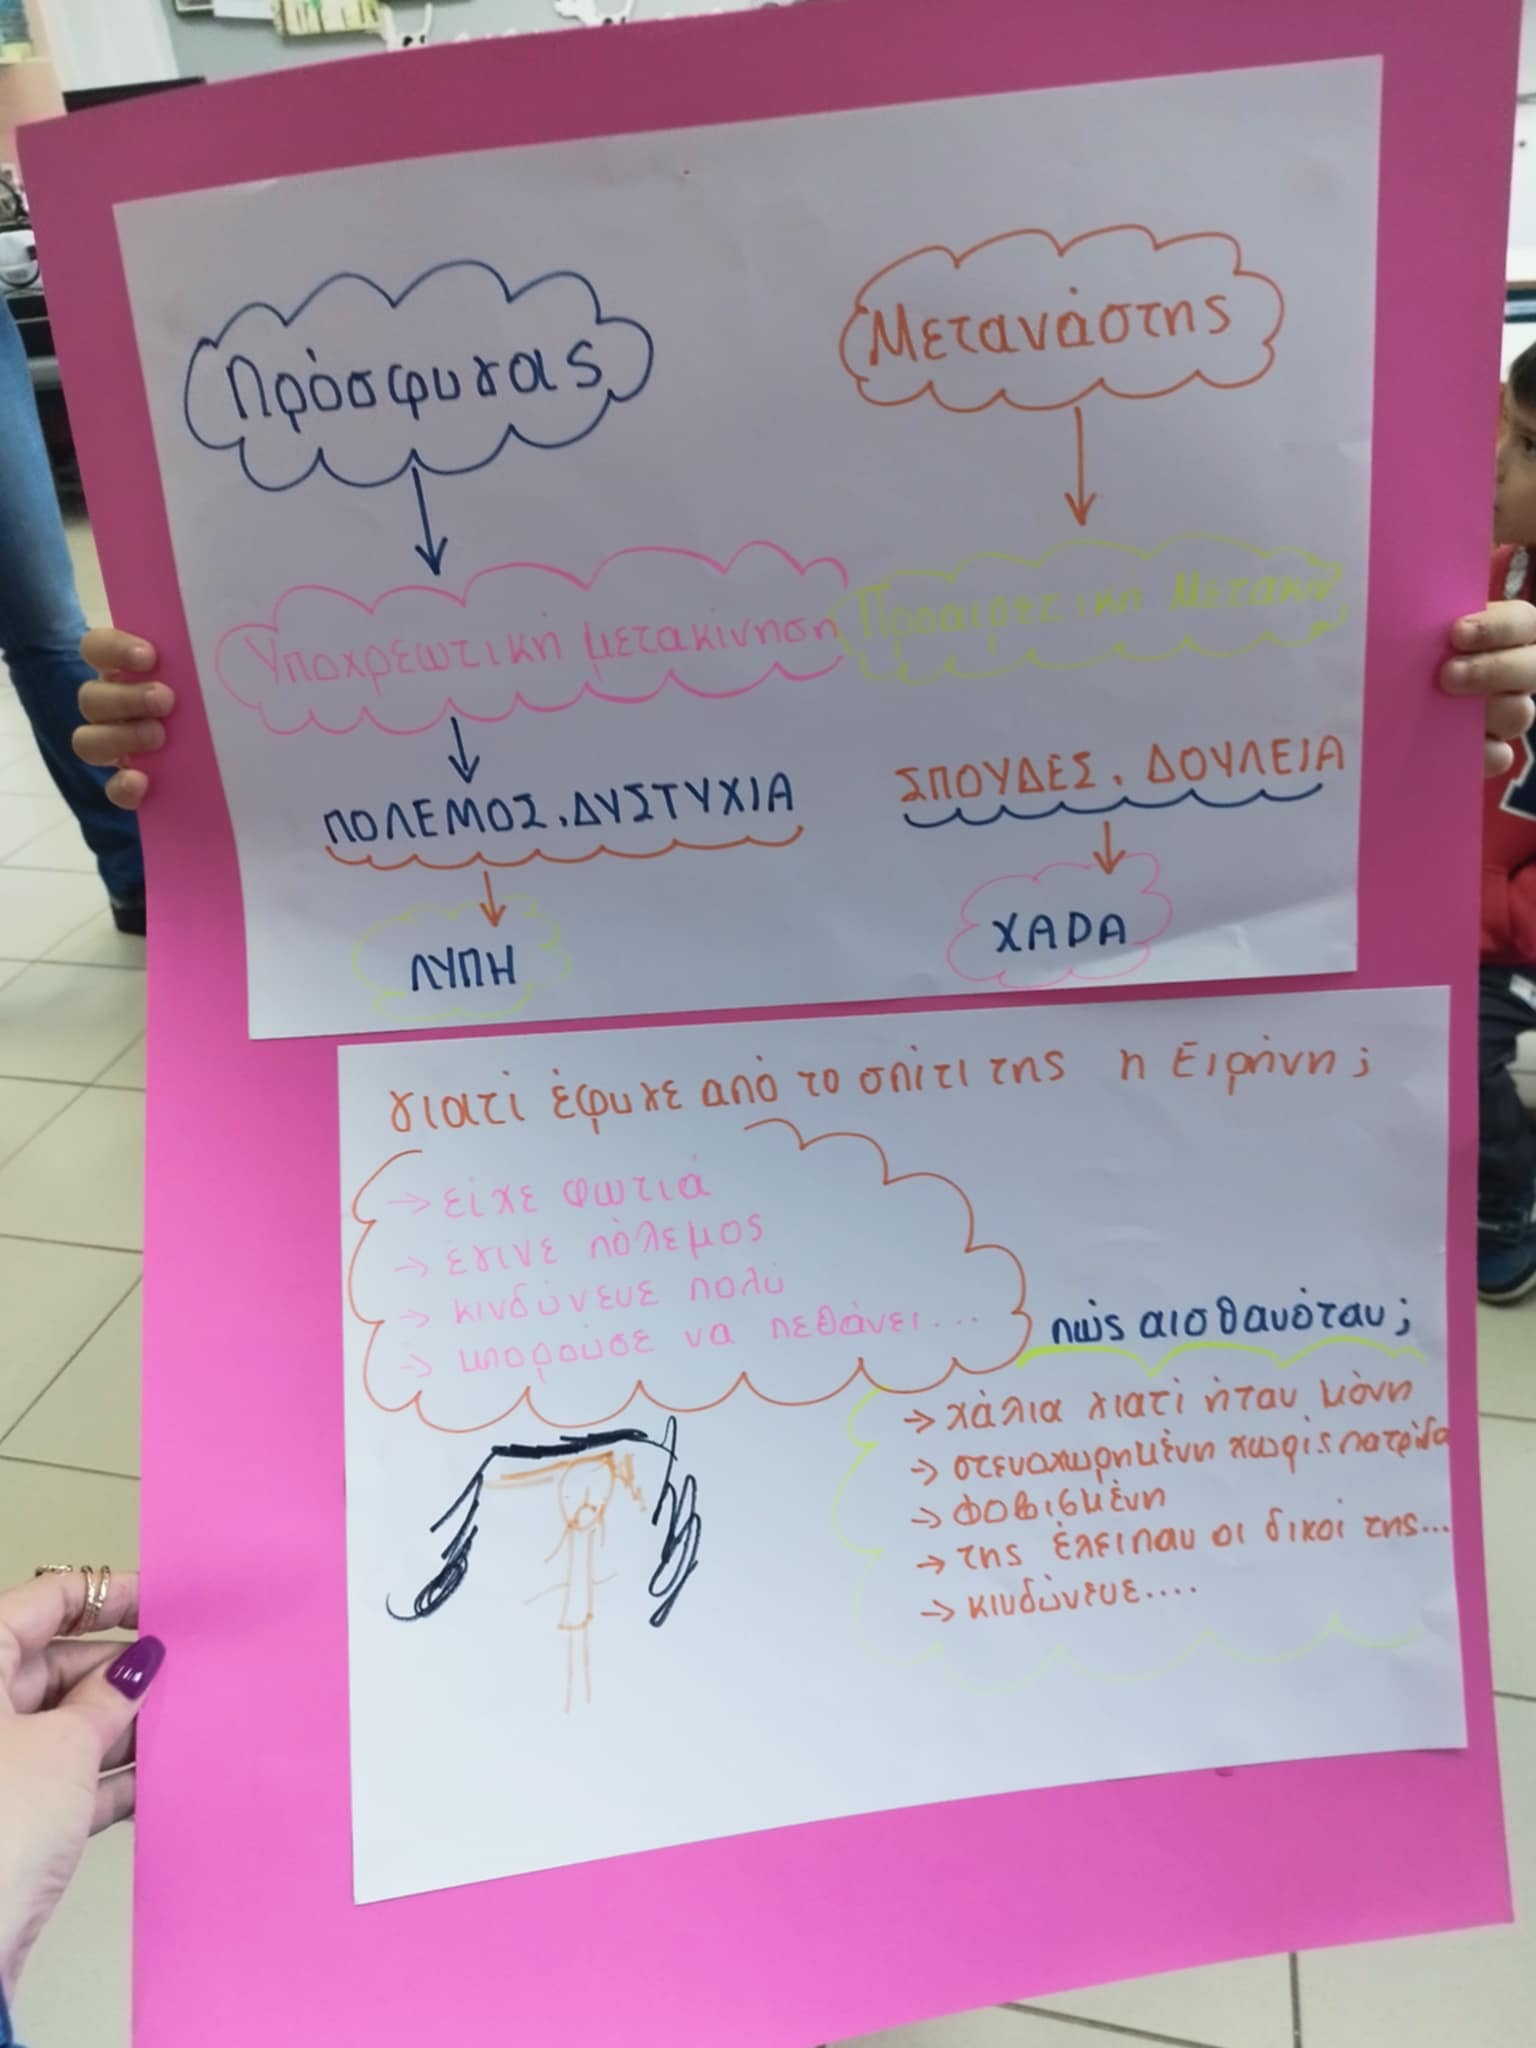 Πρόσφυγας
Μετανάστης
Υποχρεωτική μετακίνηση
Προαιρετική Μετακιν
ΠΟΛΕΜΟΣ, ΔΥΣΤΥΧΙΑ
ΣΠΟΥΔΕΣ, ΔΟΥΛΕΙΑ
ΛΥΠΗ
ΧΑΡΑ
γιατί έφυγε από το σπίτι της η Ειρήνη;
→ είχε φωτιά
→ έγινε πόλεμος
→ κινδύνευε πολύ
→ μπορούσε να πεθάνει...
πώς αισθανόταν;
→ χάλια γιατί ήταν μόνη
→ στεναχωρημένη χωρίς πατρίδα
→ φοβισμένη
→ της έλειπαν οι δικοί της...
→ κινδύνευε....